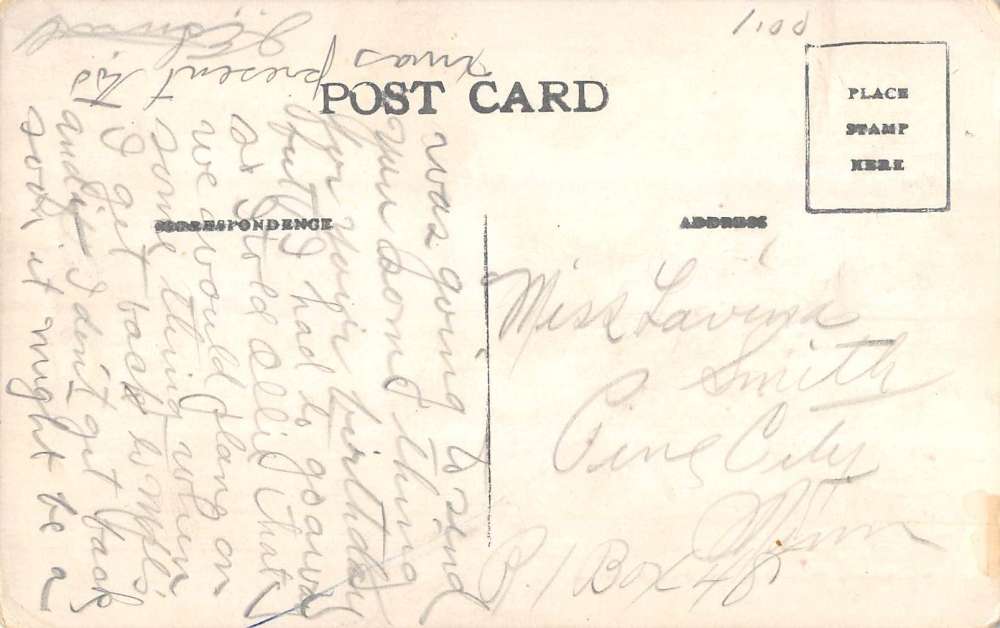 1.00
POST CARD
PLACE
STAMP
HERE
CORRESPONDENCE
ADDRESS
was going to send
you some thing
for your birthday
but I had to go away
I told that
we would plan on
some thing when
I got back to Mpls.
and if I don't get back
soon it might be a
xmas present
Miss Lavina
Smith
Pine City
Minn
R. 1 Box 48